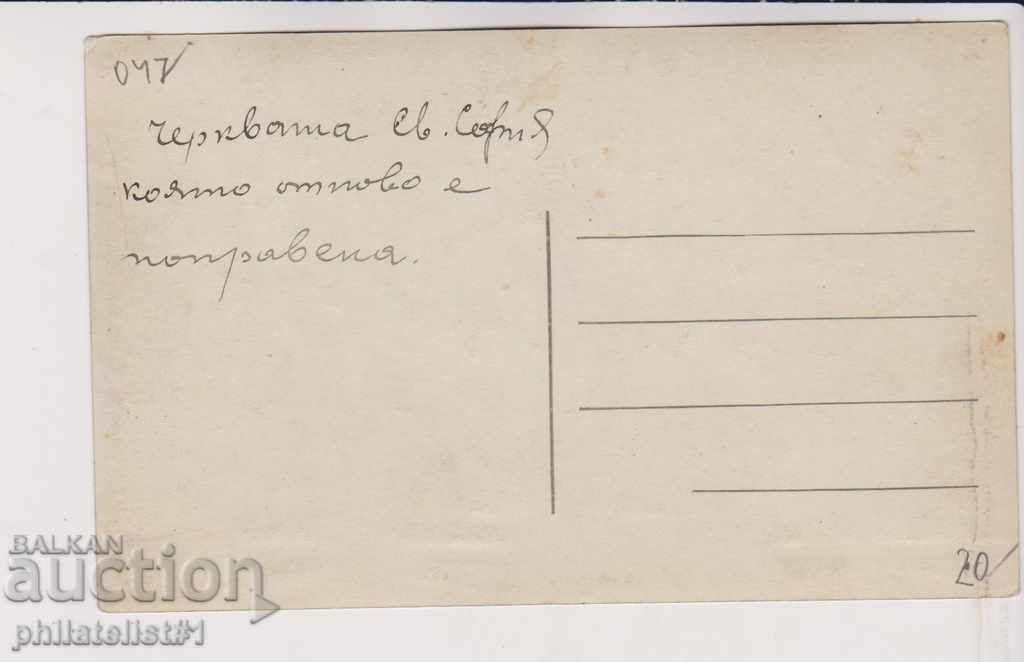 047
черквата Св. София
която отново е
поправена.
20
BALKAN
auction
philatelist#1